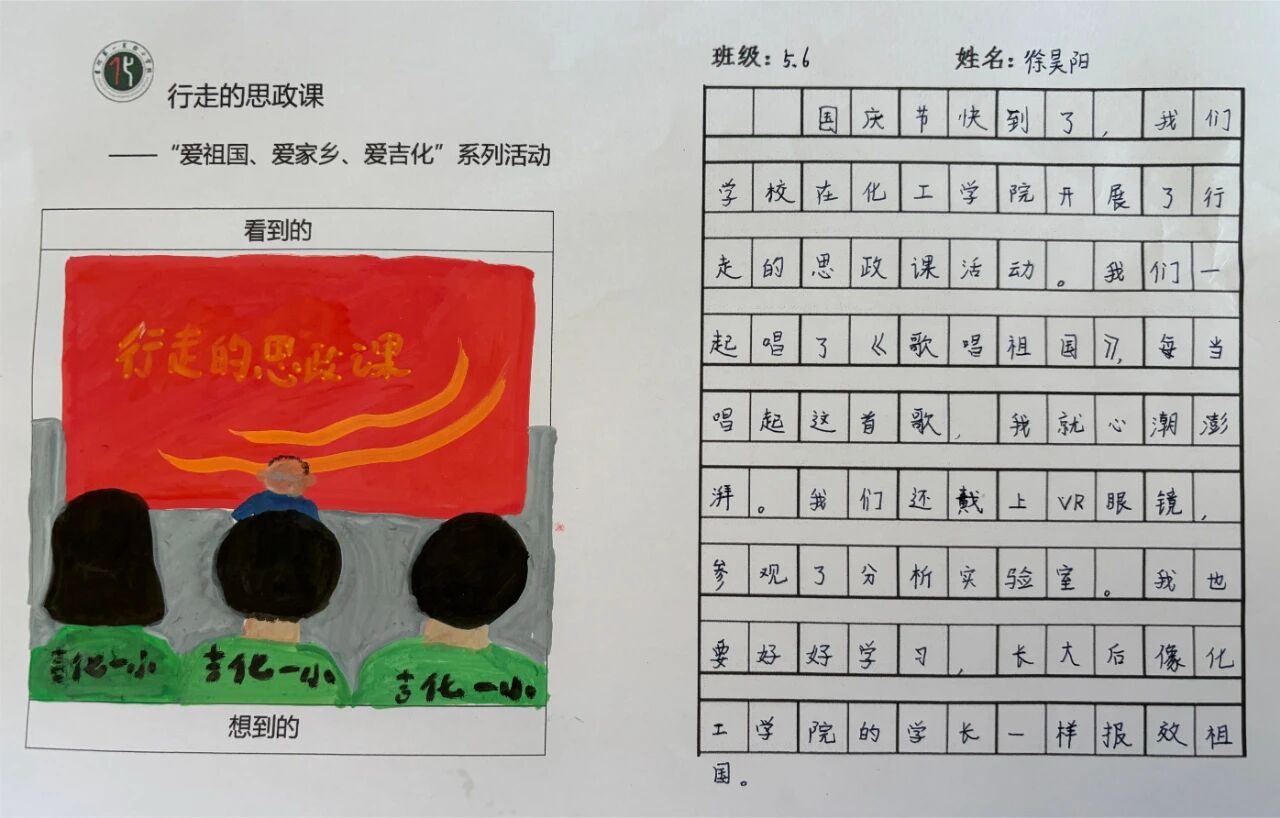 行走的思政课
——“爱祖国、爱家乡、爱吉化”系列活动
看到的
行走的思政课
吉化一小
吉化一小
吉化一小
想到的
班级：5.6 姓名：徐昊阳
国庆节快到了，我们
学校在化工学院开展了行
走的思政课活动。我们一
起唱了《歌唱祖国》，每当
唱起这首歌，我就心潮澎
湃。我们还戴上VR眼镜，
参观了分析实验室。我也
要好好学习，长大后像化
工学院的学长一样报效祖
国。